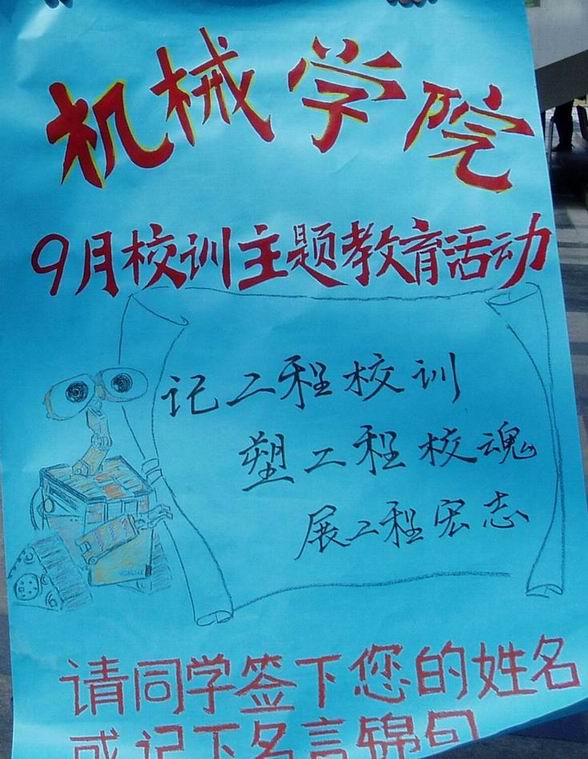 机械学院
9月校训主题教育活动
记工程校训
塑工程校魂
展工程宏志
请同学签下您的姓名
或记下名言锦句